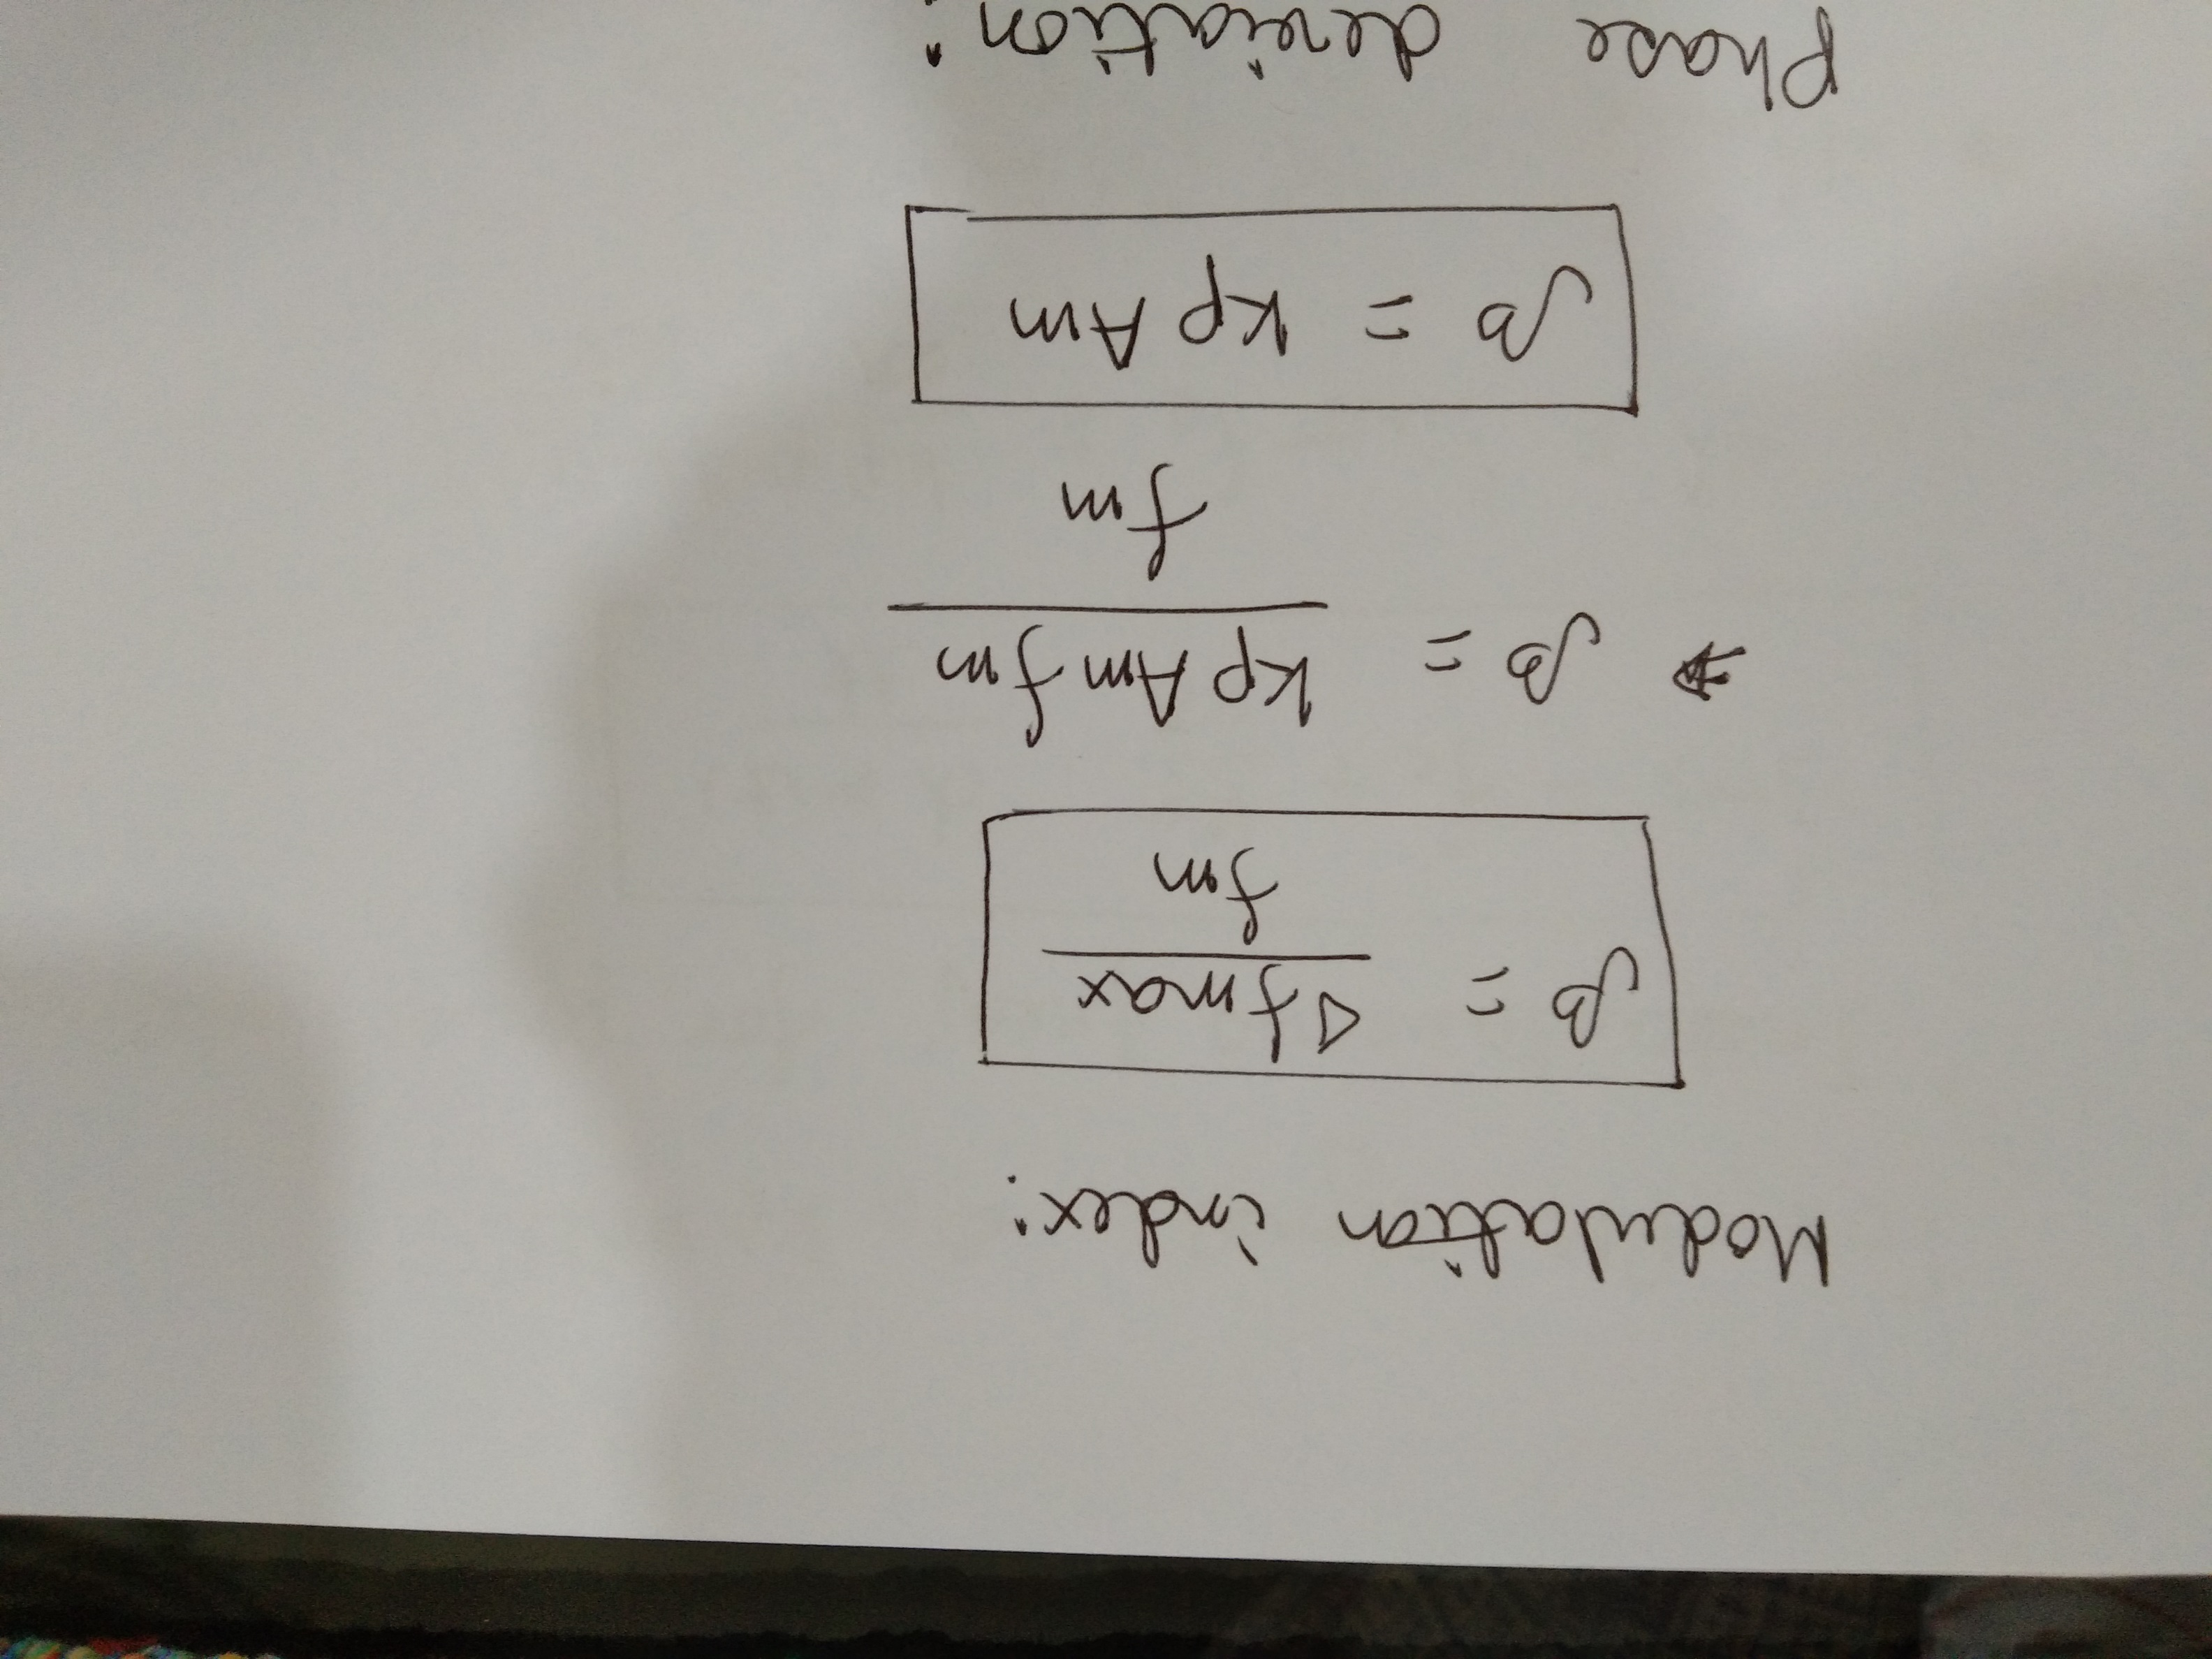 Modulation index:
β = Δfmax / fm
β = kp Am fm / fm
β = kp Am
Phase deviation: